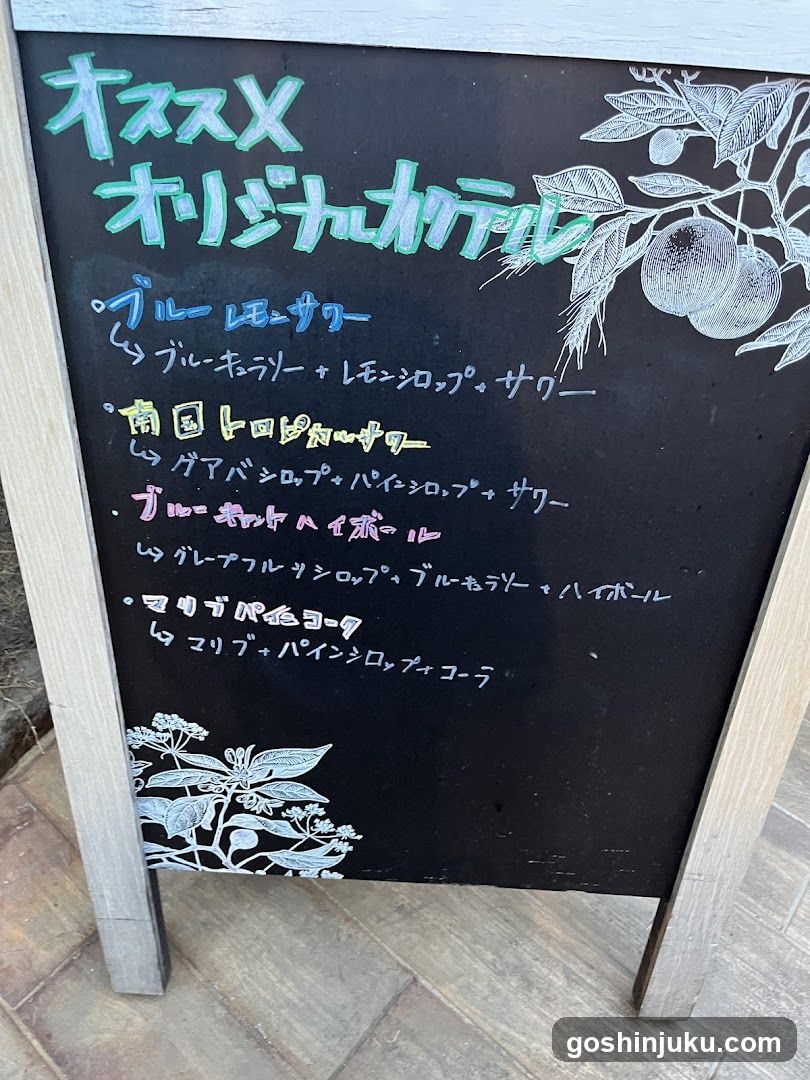 オススメ
オリジナルカクテル
・ブルーレモンサワー
↳ ブルーキュラソー + レモンシロップ + サワー
・南国トロピカルサワー
↳ グアバシロップ + パインシロップ + サワー
・ブルーキャットハイボール
↳ グレープフルーツシロップ + ブルーキュラソー + ハイボール
・マリブパインコーク
↳ マリブ + パインシロップ + コーラ
goshinjuku.com